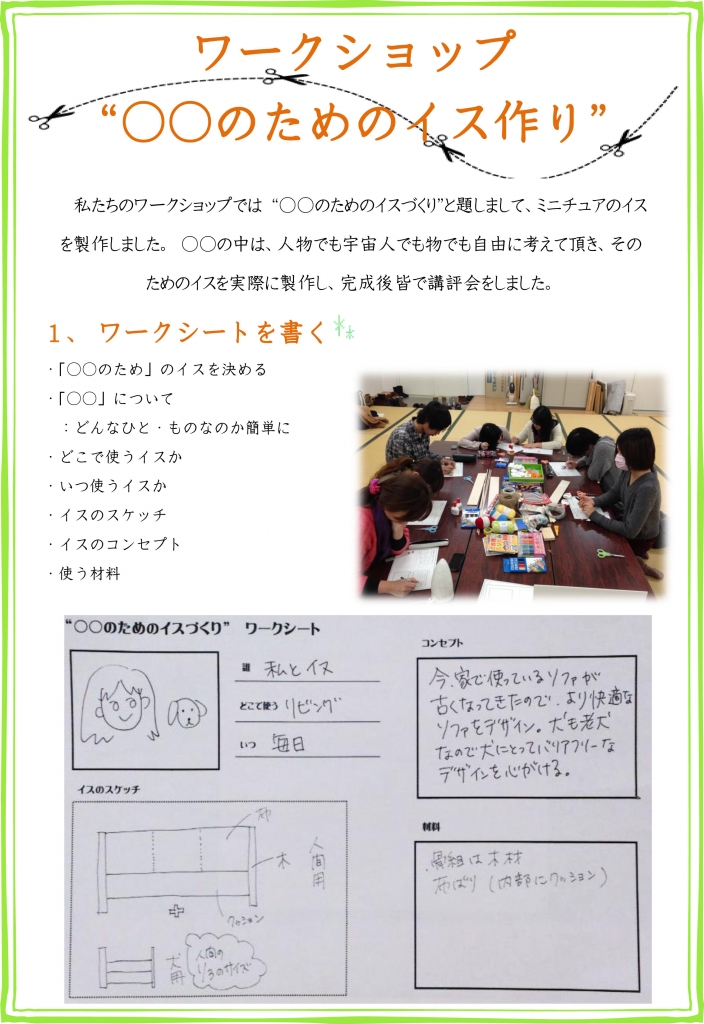 ワークショップ
“〇〇のためのイス作り”
私たちのワークショップでは “〇〇のためのイスづくり”と題しまして、ミニチュアのイス
を製作しました。 〇〇の中は、人物でも宇宙人でも物でも自由に考えて頂き、その
ためのイスを実際に製作し、完成後皆で講評会をしました。
1、 ワークシートを書く
・「〇〇のため」のイスを決める
・「〇〇」について
：どんなひと・ものなのか簡単に
・どこで使うイスか
・いつ使うイスか
・イスのスケッチ
・イスのコンセプト
・使う材料
“〇〇のためのイスづくり” ワークシート
誰 私とイヌ
どこで使う リビング
いつ 毎日
コンセプト
今、家で使っているソファが
古くなってきたので、より快適な
ソファをデザイン。犬も老犬
なので犬にとってバリアフリーな
デザインを心がける。
イスのスケッチ
布
木
人間用
クッション
+
犬用
人間の
1/3のサイズ
材料
骨組は木材
布ばり(内部にクッション)